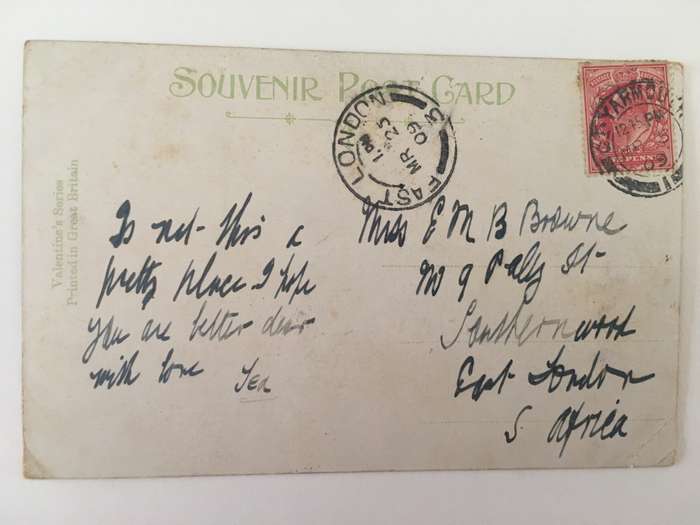 SOUVENIR POST CARD
Valentine's Series
Printed in Great Britain
EAST LONDON
3
1 PM
MR 23
09
YARMOUTH
12.15 PM
09
Is not this a
pretty place I hope
you are better dear
with love
Miss E M B Browne
No 9 St
Southernwood
East London
S Africa